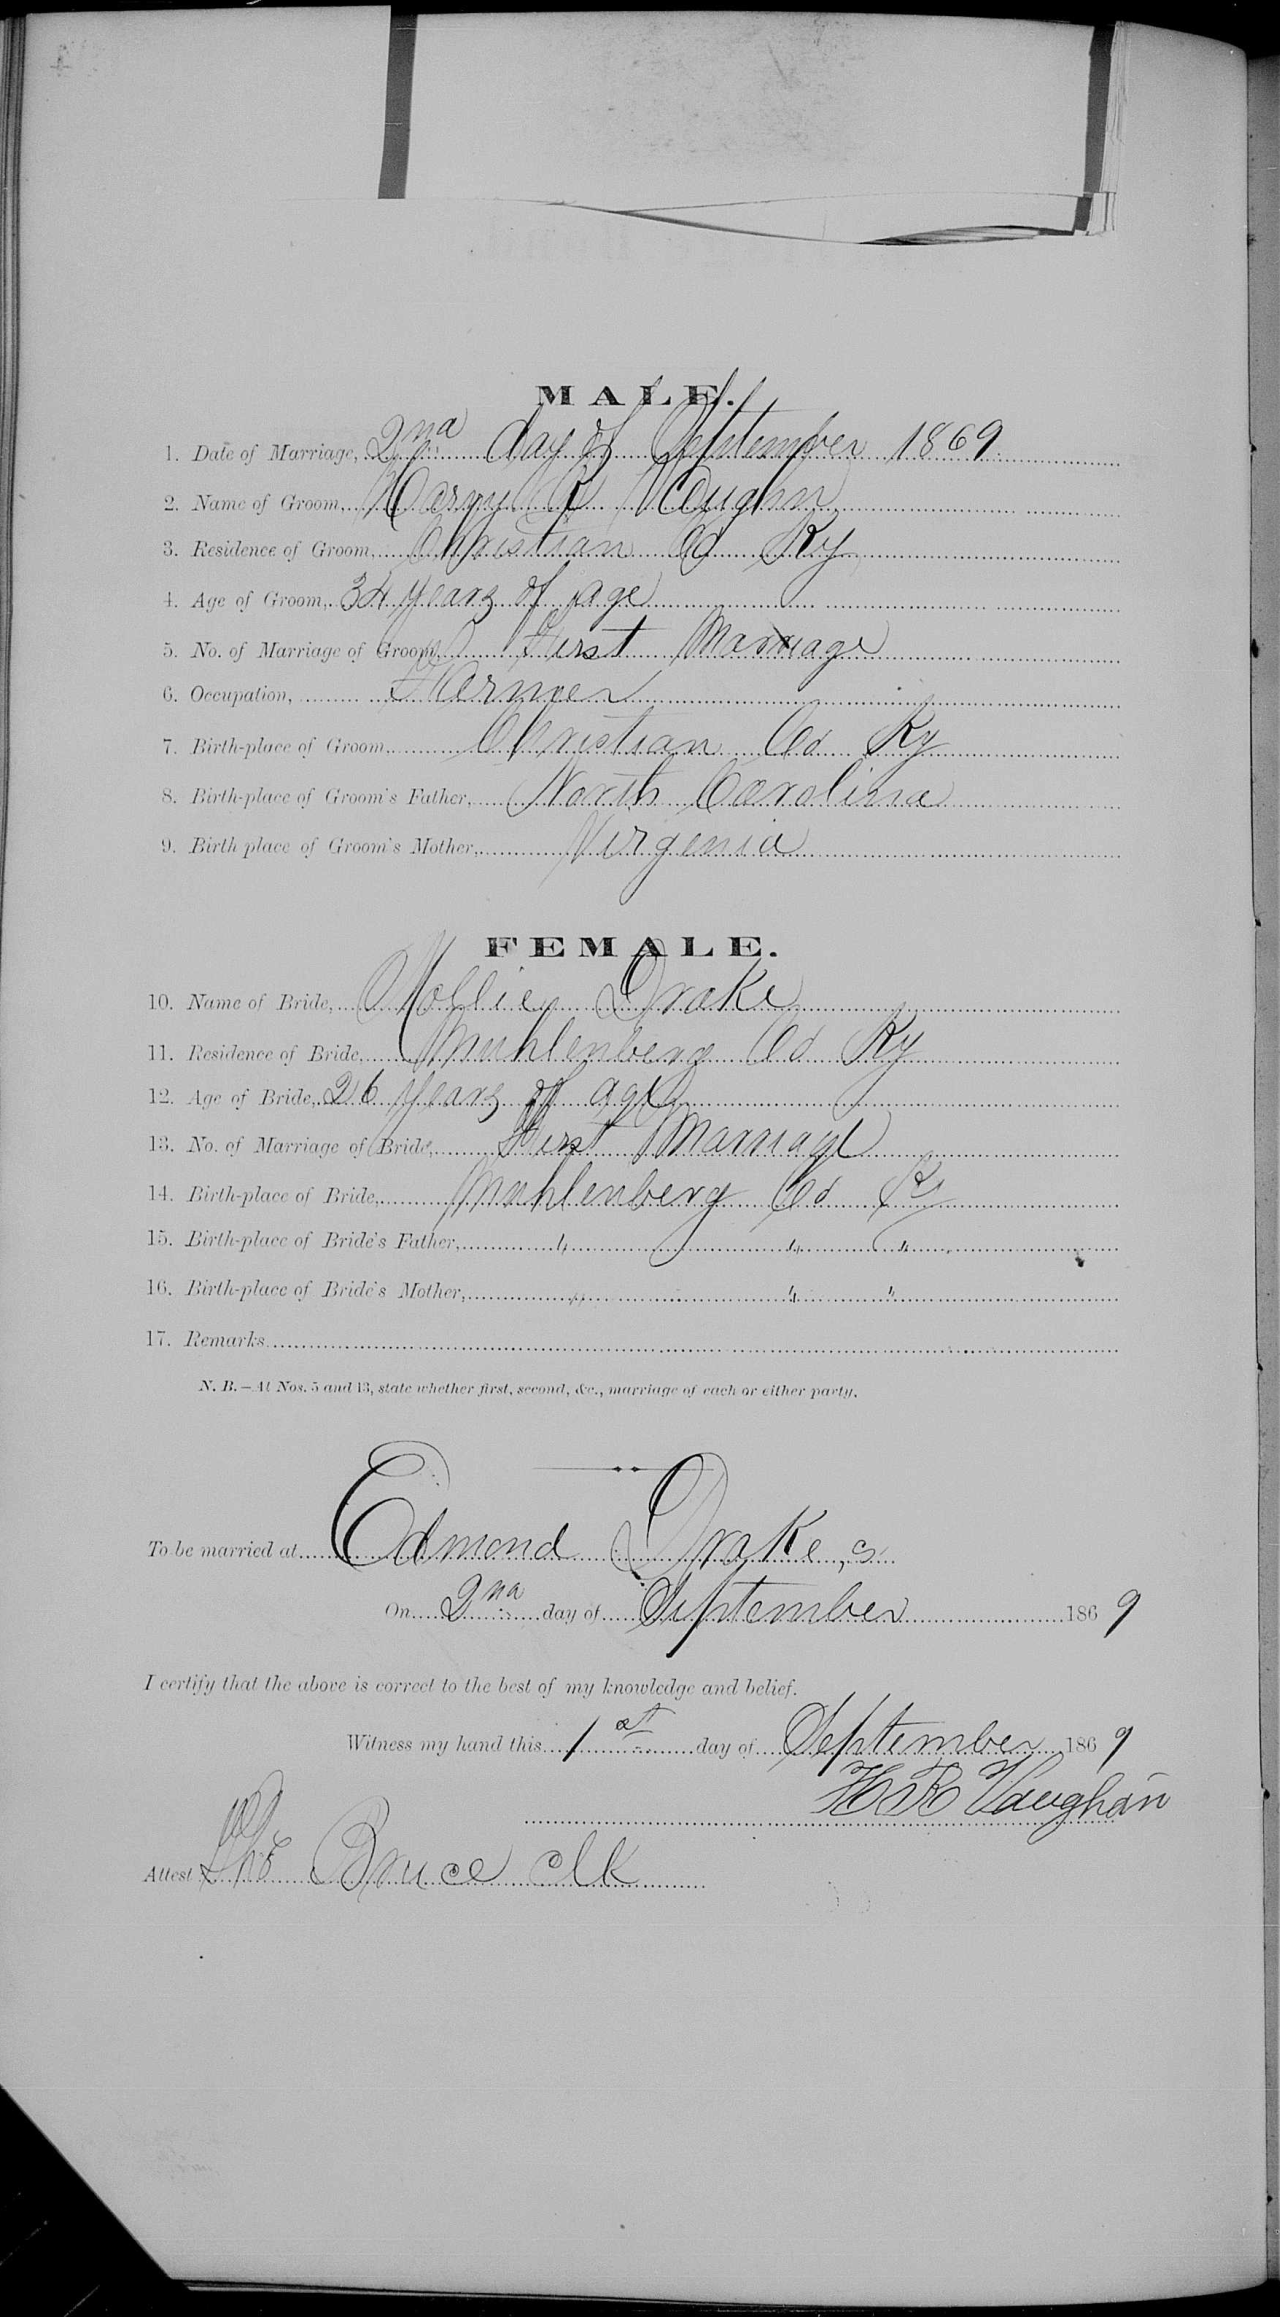 MALE.
1. Date of Marriage, 2nd day of September 1869
2. Name of Groom, R Vaughn
3. Residence of Groom, Christian Co Ky
4. Age of Groom, 34 years of age
5. No. of Marriage of Groom, First Marriage
6. Occupation, Farmer
7. Birth-place of Groom, Christian Co Ky
8. Birth-place of Groom's Father, North Carolina
9. Birth place of Groom's Mother, Virgenia
FEMALE.
10. Name of Bride, Mollie Drake
11. Residence of Bride, Muhlenberg Co Ky
12. Age of Bride, 26 years of age
13. No. of Marriage of Bride, First Marriage
14. Birth-place of Bride, Muhlenberg Co Ky
15. Birth-place of Bride's Father, " " "
16. Birth-place of Bride's Mother, " " "
17. Remarks
N. B.—At Nos. 5 and 13, state whether first, second, &c., marriage of each or either party.
To be married at Edmond Drake,s
On 2nd day of September 1869
I certify that the above is correct to the best of my knowledge and belief.
Witness my hand this 1st day of September 1869
H R Vaughan
Attest Bruce clk